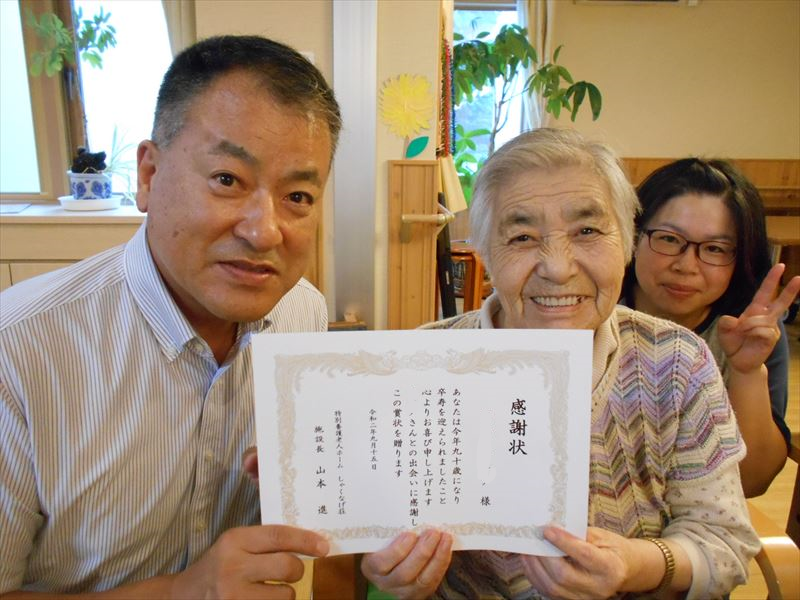 感謝状
様
あなたは今年九十歳になり
卒寿を迎えられましたこと
心よりお喜び申し上げます
さんとの出会いに感謝し
この賞状を贈ります
令和二年九月十五日
特別養護老人ホーム しゃくなげ荘
施設長 山本 進